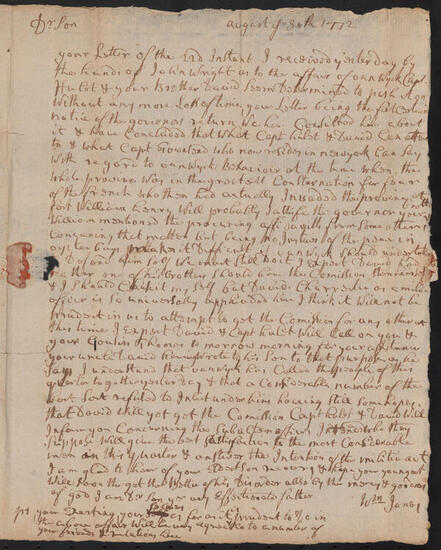 Dr Son august ye 30th 1772
your Letter of the 22d Instant I received yesterday by
the hands of John Wright as to the affair of vanwyck Capt
Hulet & your Brother David Seem Determined to push
without any more Loss of time, your Letter being the first
notice of the governors return We have Consulted about
it & have Concluded that What Capt Hulet & David Can
to & what Capt who now resides in newyork Can say
With regard to vanwycks Behaviour at the time when the
whole province was in the greatest Consternation for fear
of the french who then had actually Invaded the province at
fort William Henry Will probably Satisfie the governor your
William mentioned the procuring affidavits from some others
Concerning that matter but being no Justice of the peace in
oyster bay
Do for him self We must I expect David would
rather one of his Brothers should have the Comission then himself
& I should Like it my self but Davids Charracter as a military
officer is so universally applauded here I think it Will not be
prudent in us to attempt to get the Comission for any other at
this time I expect David & Capt Hulet Will Call on you &
your to morrow morning for your assistance
your uncle David Wrote his Son to that purpose as he
Says I understand that vanwyck has Called the people of this
quarter together yesterday & that a Considerable number of the
best Sort refused to Inlist under him having Still Some hopes
that David Will yet get the Comission Capt Hulet & David Will
Inform you Concerning the Subaltern officers Intended be they
Suppose Will give the best Satisfaction to the most Considerable
men in this quarter & answer the Intention of the militia act
I am glad to hear of your Eldest Son recovery & hope your youngest
Will soon the got the Better of his Disorder also by the mercy & goodness
of god I am Dr Son yr very affectionate father
Wm Jones
ps your Exerting your Self as far as it prudent to Do in
the above affair Will be very agreeable to a number of
your friends & relations here